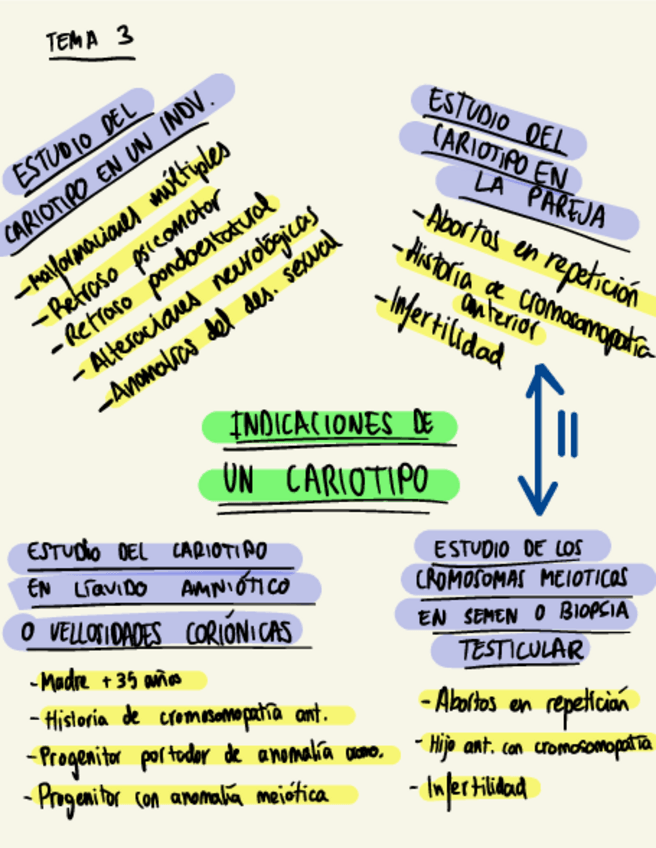 TEMA 3
ESTUDIO DEL
CARIOTIPO EN UN INDV.
-Malformaciones múltiples
-Retraso psicomotor
-Retraso pondoestatural
-Alteraciones neurológicas
-Anomalías del des. sexual
ESTUDIO DEL
CARIOTIPO EN
LA PAREJA
-Abortos en repetición
-Historia de cromosomopatía
anterior
-Infertilidad
INDICACIONES DE
UN CARIOTIPO
ESTUDIO DEL CARIOTIPO
EN LÍQUIDO AMNIÓTICO
O VELLOSIDADES CORIÓNICAS
-Madre +35 años
-Historia de cromosomopatía ant.
-Progenitor portador de anomalía
-Progenitor con anomalía meiótica
ESTUDIO DE LOS
CROMOSOMAS MEIOTICOS
EN SEMEN O BIOPSIA
TESTICULAR
-Abortos en repetición
-Hijo ant. con cromosomopatía
-Infertilidad